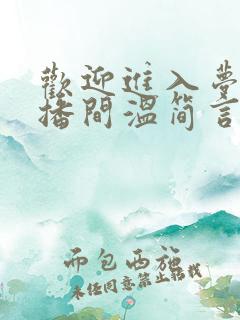 歡迎進入夢
播間溫簡言
而包西施
未经同意禁止转载